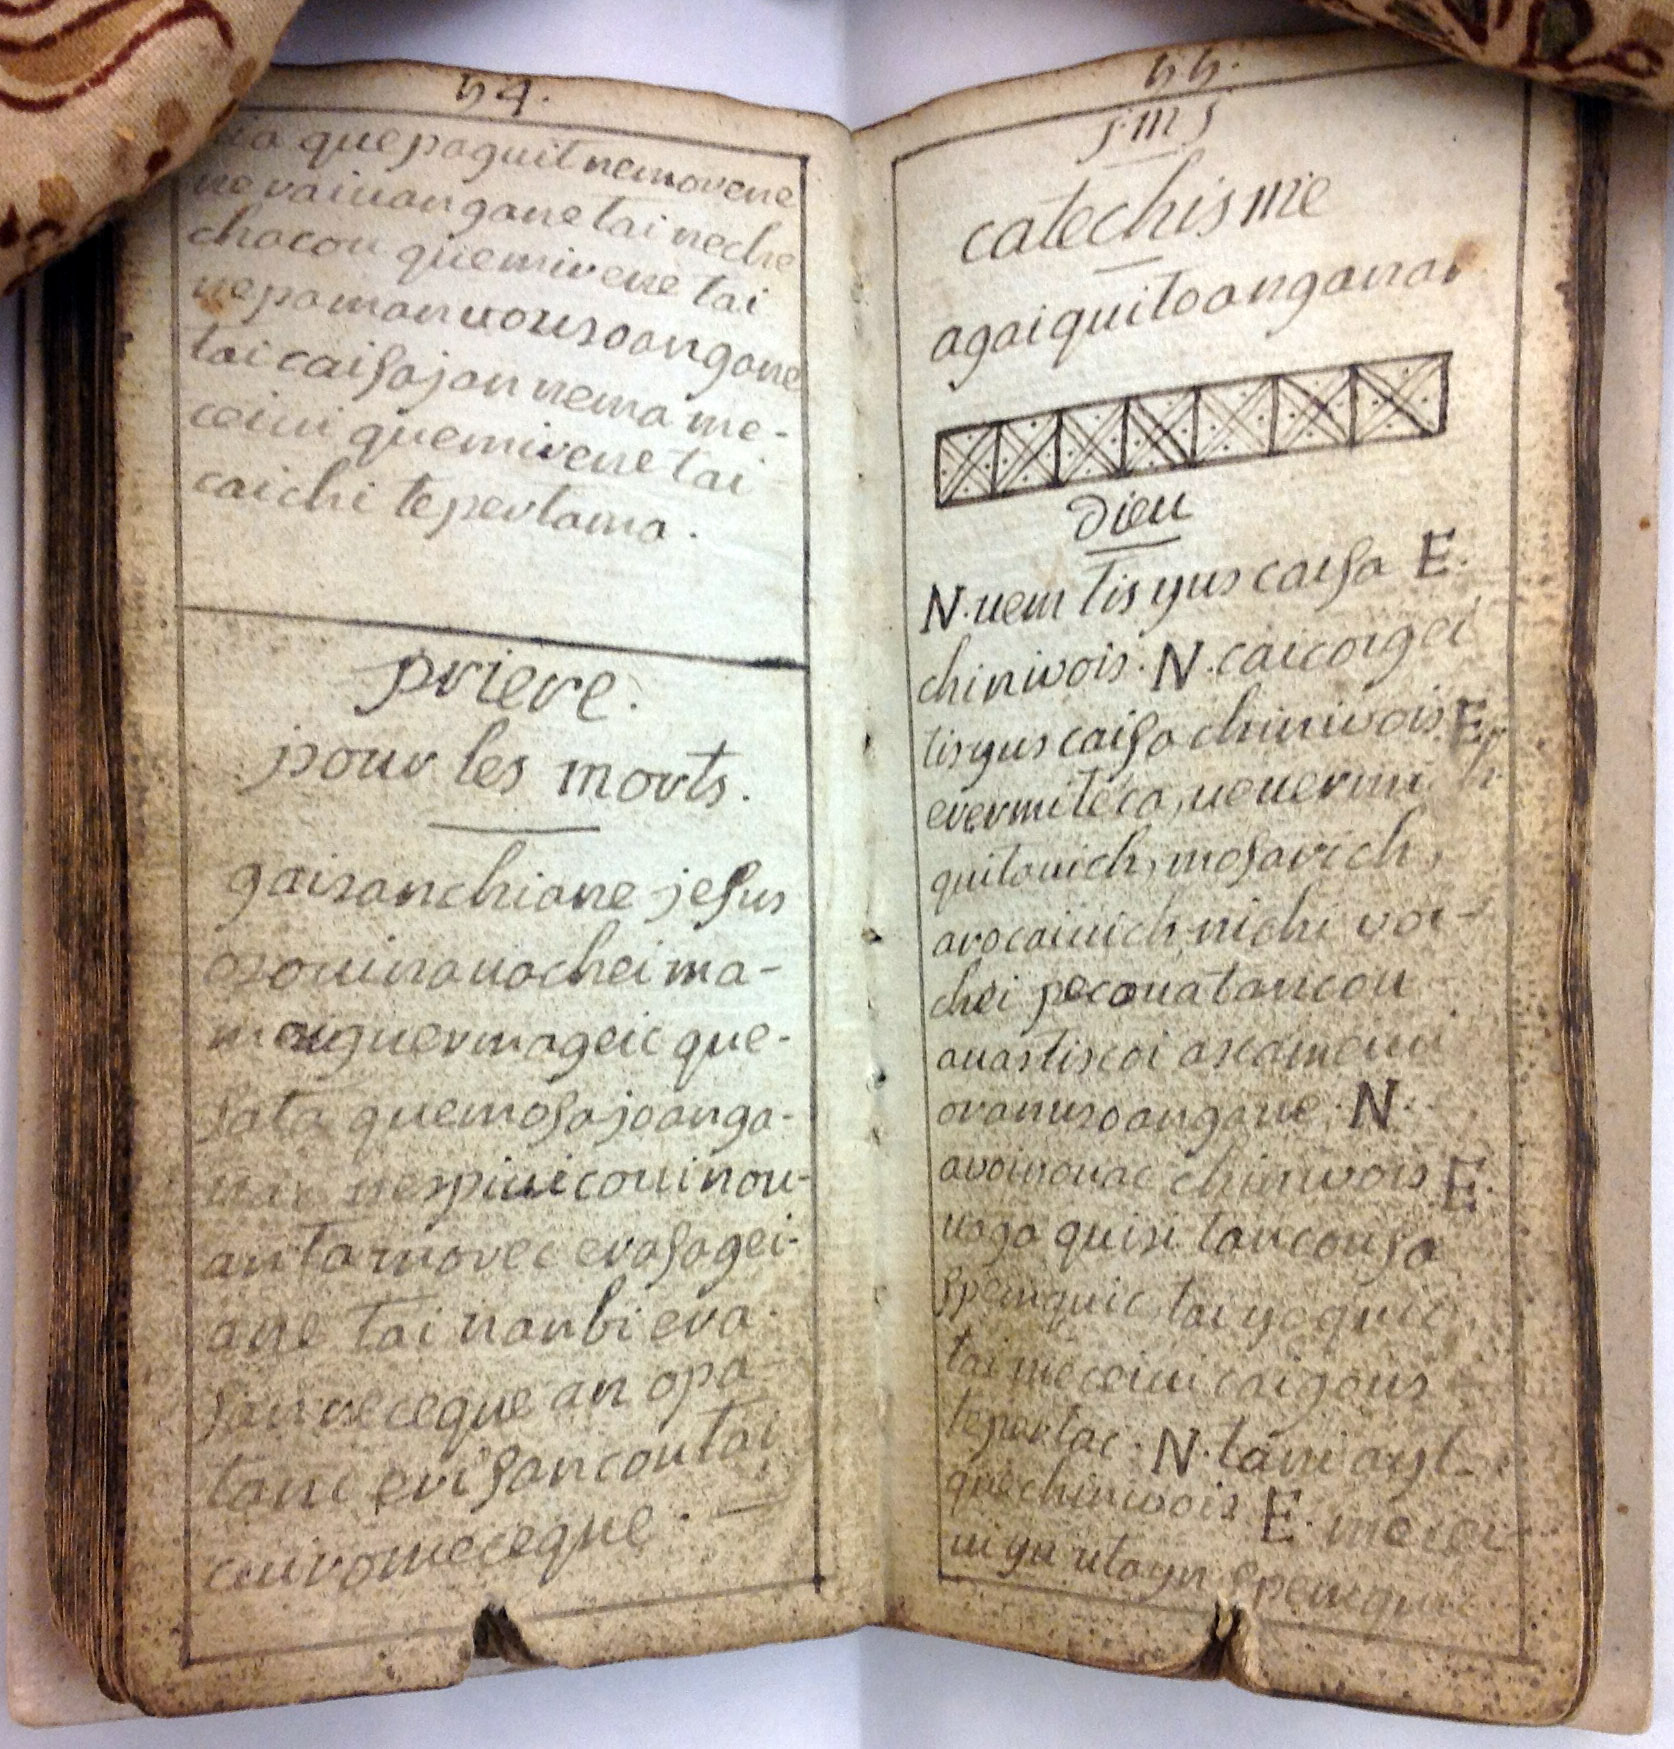 54.
que paguit nemovene
ne vaiuangane tai neche
chacou quemivene tai
nepamanvousoangane
tai caisajan nema me-
ceiui quemivene tai
caichi tepeltama.
priere.
pour les morts.
gaisanchiane jesus
osouinauachei ma-
maiguermageic que-
sata quemosajoanga-
nespiuicouinou-
antamovec evasagei-
ane tai nanbi eva-
sanveceque an opa-
tanc evisancoutai
cuivomeceque.
55.
J M J
catechisme
agaiquitoangana
dieu
N. uem tisyus caisa E.
chiniwois. N. caicoigei
tisyus caisa chiniwois E.
evermiteca, ueuermi
quitouich, mosavich,
avocaiuich nichi voi-
chei pecouatancou
auastiscoi ascameuoi
ovanusoangane. N.
avoinouac chiniwois E.
uaga quisi tancousa
spemquic, tai yoquic
tai meceiui caigous
tepeltac. N. tani ayl-
quechiniwois E. mecei-
ui yu utayu spemqui